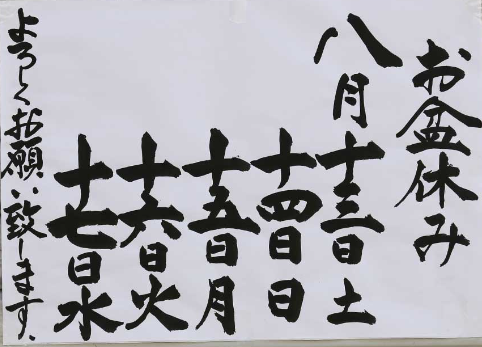 お盆休み
八月十三日土
十四日日
十五日月
十六日火
十七日水
よろしくお願い致します。